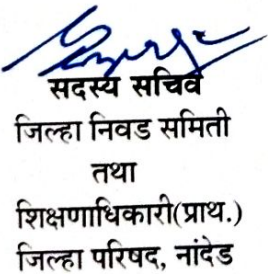 सदस्य सचिव
जिल्हा निवड समिती
तथा
शिक्षणाधिकारी(प्राथ.)
जिल्हा परिषद, नांदेड